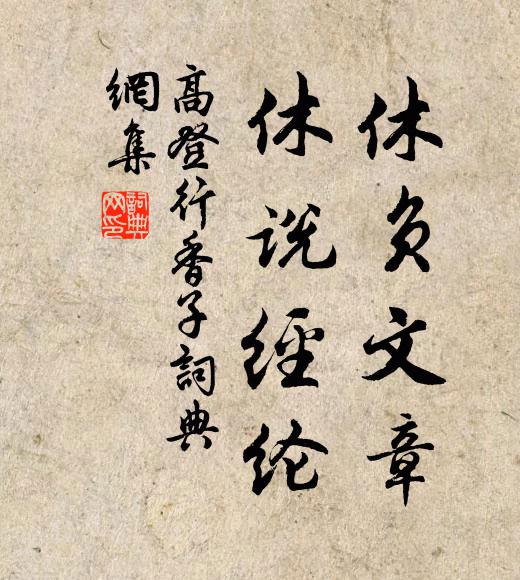 休负文章
休说經纶
高登行香子詞典
網集
詞典
网印